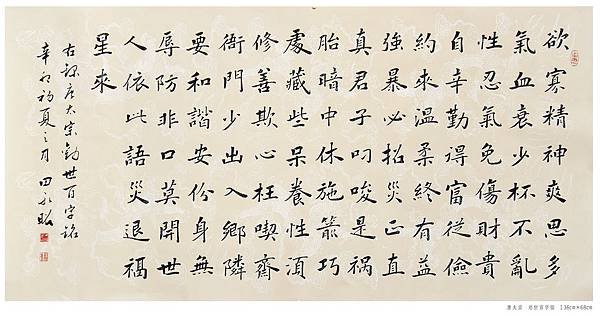 欲寡精神爽思多
氣血衰少杯不亂
性忍氣免傷財貴
自辛勤得富從儉
約來溫柔終有益
強暴必招災正直
真君子叼唆是禍
胎暗中休施箭巧
處藏些呆養性須
修善欺心枉喫齋
衙門少出入鄉隣
要和諧安份身無
辱防非口莫開世
人依此語災退福
星來
右錄唐太宗勸世百字銘
辛卯初夏之月 田
136cm×68cm